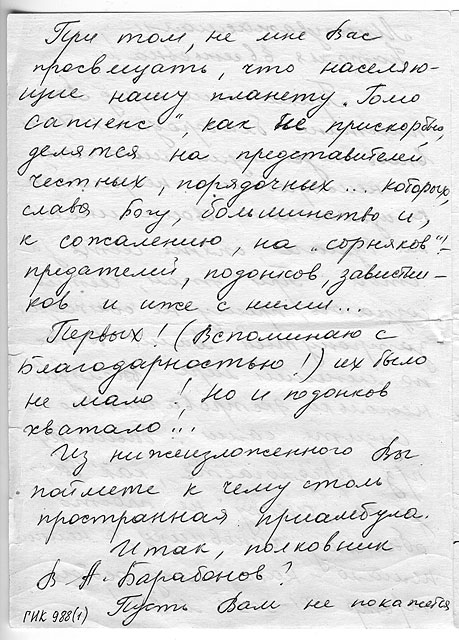 При том, не мне Вас
просвещать, что населяю-
щие нашу планету „Гомо
сапиенс“, как не прискорбно,
делятся на представителей
честных, порядочных... которых,
слава Богу, большинство и,
к сожалению, на „сорняков“!-
предателей, подонков, завистни-
ков и иже с ними...
Первых! (Вспоминаю с
благодарностью!) их было
не мало! Но и подонков
хватало!..
Из нижеизложенного Вы
поймете к чему столь
пространная приамбула.
Итак, полковник
В. А. Барабонов?
Пусть Вам не покажется
ГИК 988(1)